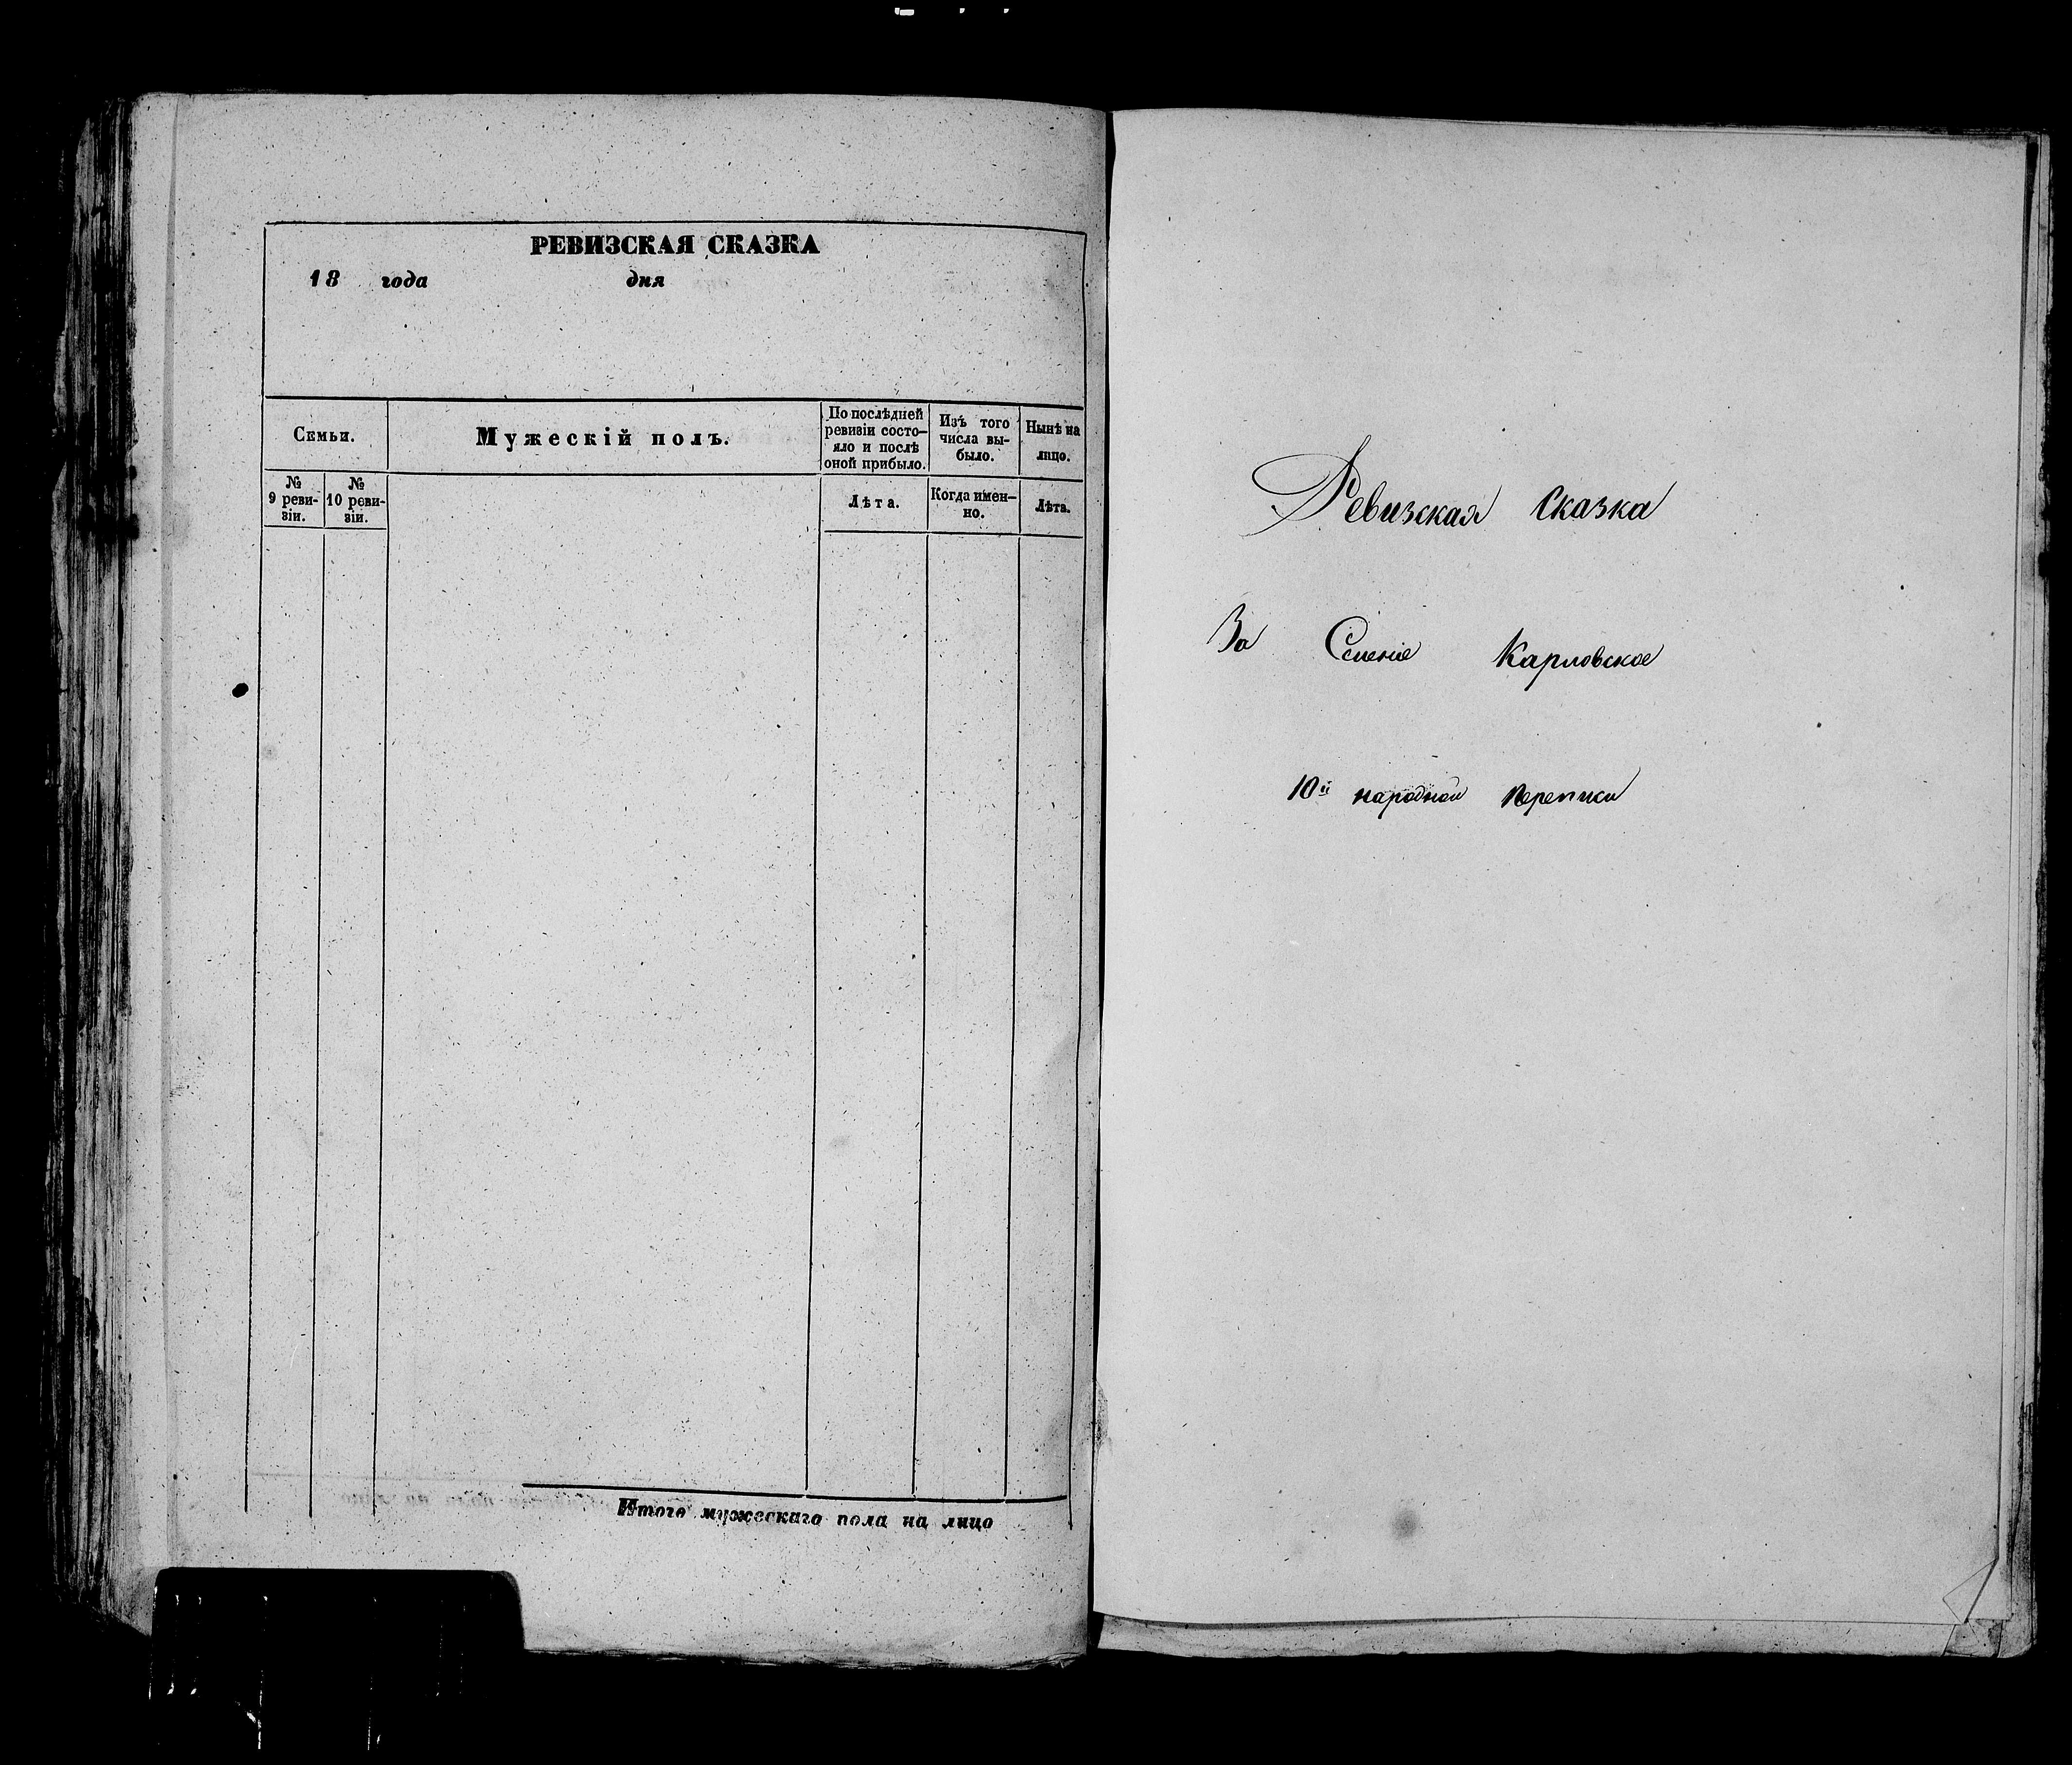 РЕВИЗСКАЯ СКАЗКА
18 года дня
Семьи.
Мужескій полъ.
По послѣдней
ревизіи состо-
яло и послѣ
оной прибыло.
Изъ того
числа вы-
было.
Нынѣ на
лицо.
№
9 реви-
зіи.
№
10 реви-
зіи.
Лѣта.
Когда имен-
но.
Лѣта.
Итого мужескаго пола на лицо
Ревизская Сказка
За Карловское
10й народной переписи